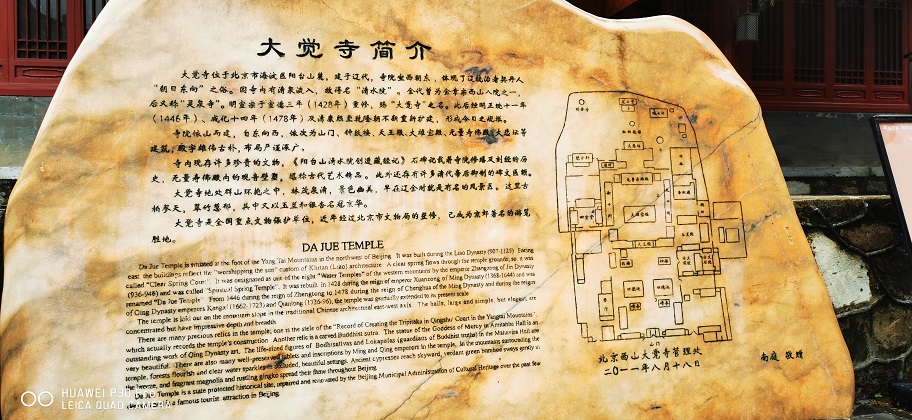 大觉寺简介
大觉寺位于北京市海淀区阳台山麓，建于辽代，寺院坐西朝东，体现了辽统治者契丹人
“朝日东向”之俗。因寺内有清泉流入，故得名“清水院”。金代曾为金章宗西山八院之一，
后又称“灵泉寺”。明宣宗于宣德三年（1428年）重修，赐“大觉寺”之名。此后经明正统十一年
（1446年）、成化十四年（1478年）及清康熙至乾隆朝不断重新扩建，形成今日之规模。
寺院依山而建，自东向西，依次为山门、钟鼓楼、天王殿、大雄宝殿、无量寿佛殿、大悲坛等
建筑，殿宇雄伟古朴，布局严谨深广。
寺内现存许多珍贵的文物，《阳台山清水院创造藏经记》石碑记载着寺院修缮及刻经的历
史，无量寿佛殿内的观音壁塑，堪称古代艺术精品。此外还存有许多清代帝后御制的碑文匾额。
大觉寺地处群山环抱之中，林茂泉清，景色幽美，早在辽金时就是有名的风景区。这里古
柏参天，翠竹葱郁，其中又以玉兰和银杏名冠京华。
大觉寺是全国重点文物保护单位，近年经过北京市文物局的整修，已成为京郊著名的游览
胜地。
DA JUE TEMPLE
Da Jue Temple is situated at the foot of the Yang Tai Mountains in the northwest of Beijing. It was built during the Liao Dynasty (907-1125). Facing
east the buildings reflect the "worshipping the sun" custom of Khitan (Liao) architecture. A clear spring flows through the temple grounds, so it was
called "Clear Spring Court". It was designated as one of the eight "Water Temples" of the western mountains by the emperor Zhangzong of Jin Dynasty
(936-946) and was called "Spiritual Spring Temple". It was rebuilt in 1428 during the reign of emperor Xuanzong of Ming Dynasty (1368-1644) and was
renamed "Da Jue Temple". From 1446 during the reign of Zhengtong to 1478 during the reign of Chenghua of the Ming Dynasty and during the reigns
of Qing Dynasty emperors Kangxi (1662-1723) and Qianlong (1736-96), the temple was gradually extended to its present scale.
The temple is laid out on the mountain slope in the traditional Chinese architectural east-west axis. The halls, large and simple, but elegant, are
concentrated but have impressive depth and breadth.
There are many precious relics in the temple; one is the stele of the "Record of Creating the Tripitaka in Qingshui Court in the Yangtai Mountains"
which actually records the temple's construction. Another relic is a carved Buddhist sutra. The statue of the Goddess of Mercy in Amitabha Hall is an
outstanding work of Qing Dynasty art. The life-sized figures of Bodhisattvas and Lokapalas (guardians of Buddhist truth) in the Mahavira Hall are
very beautiful. There are also many well-preserved tablets and inscriptions by Ming and Qing emperors in the temple. In the mountains surrounding the
temple, forests flourish and clear water sparkles in secluded, beautiful settings. Ancient cypresses reach skyward, verdant green bamboo sways gently in
the breeze, and fragrant magnolia and rustling gingko spread their fame throughout Beijing.
Da Jue Temple is a state protected historical site, repaired and renovated by the Beijing Municipal Administration of Cultural Heritage over the past few
a famous tourist attraction in Beijing.
大悲坛
无量寿佛殿
大雄宝殿
天王殿
山门
北京西山大觉寺管理处
二〇一一年八月十八日
南庭 敬赠
HUAWEI P30
LEICA QUAD CAMERA